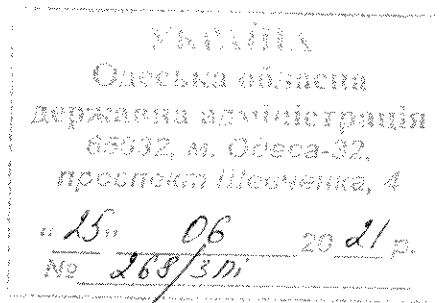 УКРАЇНА
Одеська обласна
державна адміністрація
65032, м. Одеса-32,
проспект Шевченка, 4
"25" 06 2021 р.
№ 268/3пі